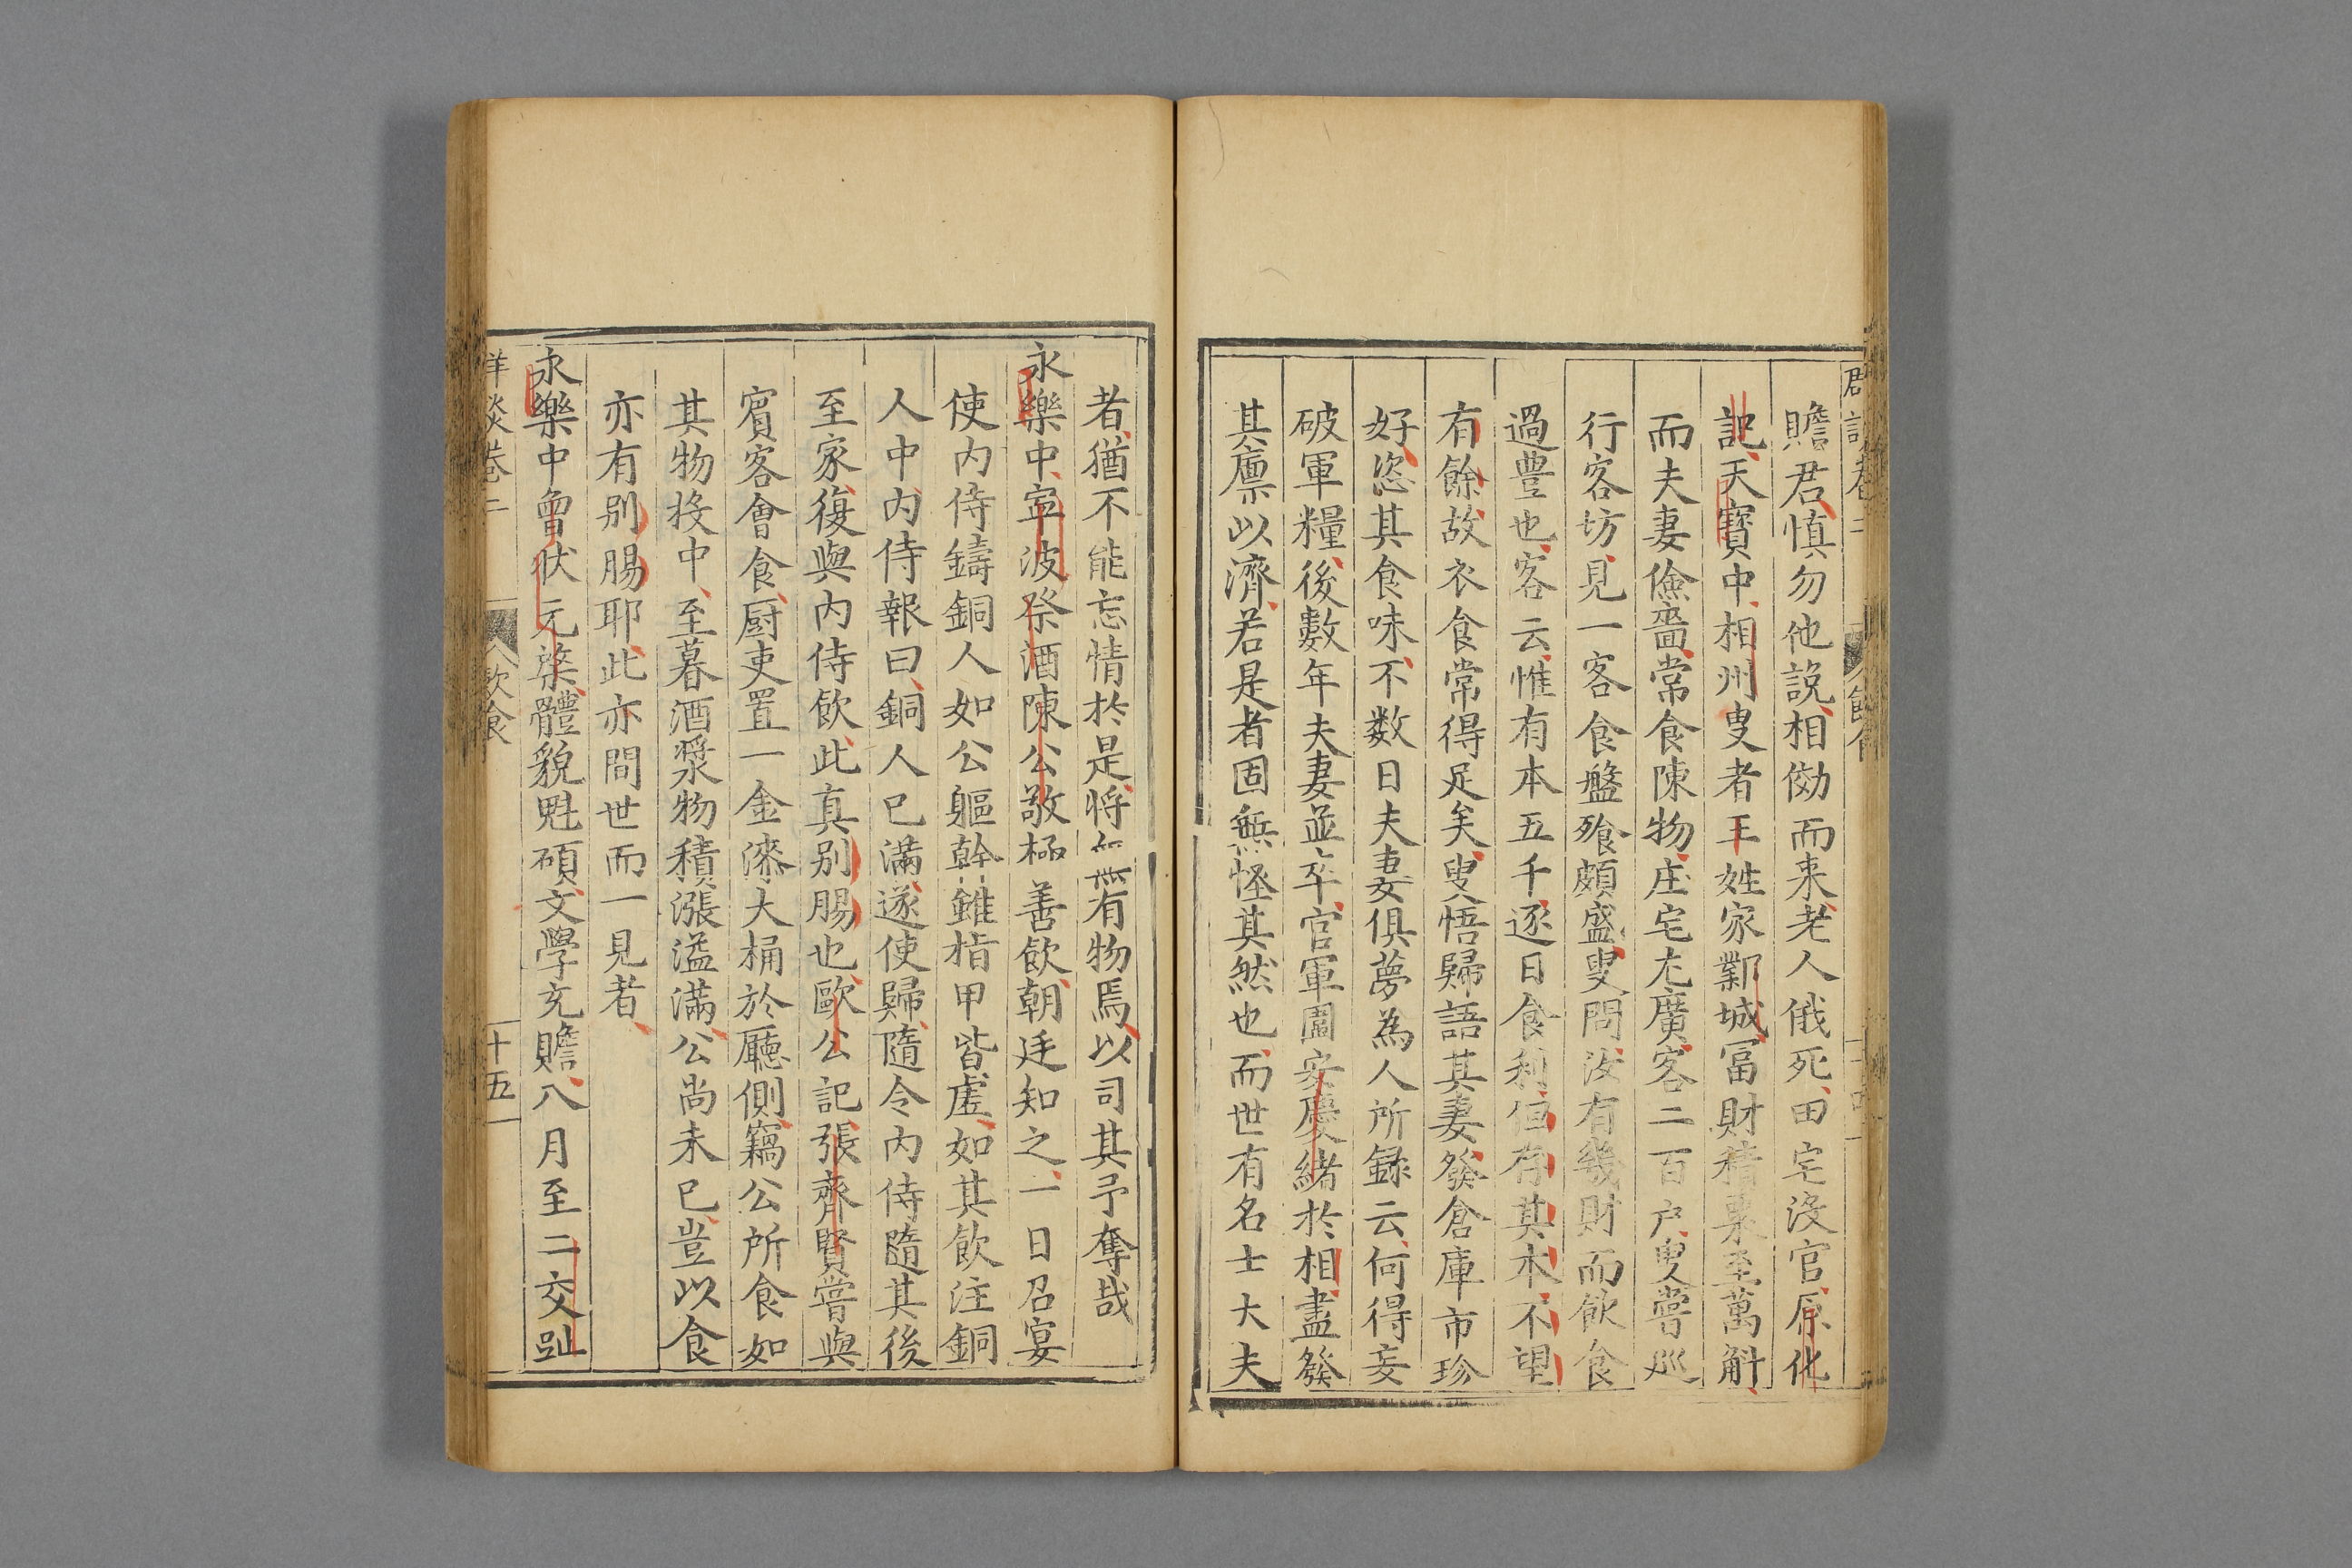 贍君慎勿他說相傚而来老人俄死田宅沒官原化
記天寶中相州叟者王姓家鄴城冨財積粟至萬斛
而夫妻儉嗇常食陳物庄宅尤廣客二百户叟嘗巡
行客坊見一客食盤飱頗盛叟問汝有幾財而飲食
過豊也客云惟有本五千逐日食利但存其本不望
有餘故衣食常得足矣叟悟歸語其妻發倉庫市珍
好恣其食味不数日夫妻俱夢為人所録云何得妄
破軍糧後數年夫妻並卒官軍圍安慶緒於相盡發
其廪以濟若是者固無怪其然也而世有名士大夫
者猶不能忘情於是将無有物焉以司其予奪哉
永樂中寧波祭酒陳公敬極善飲朝廷知之一日召宴
使内侍鑄銅人如公軀幹錐指甲皆虗如其飲注銅
人中内侍報曰銅人已滿遂使歸隨令内侍隨其後
至家復與内侍飲此真别腸也歐公記張齊賢嘗與
賓客會食厨吏置一金漆大桶於廳側竊公所食如
其物投中至暮酒漿物積漲溢滿公尚未已豈以食
亦有别腸耶此亦間世而一見者
永樂中曾状元棨體貌魁碩文學充贍八月至二交趾
群談卷二
飲食
十五